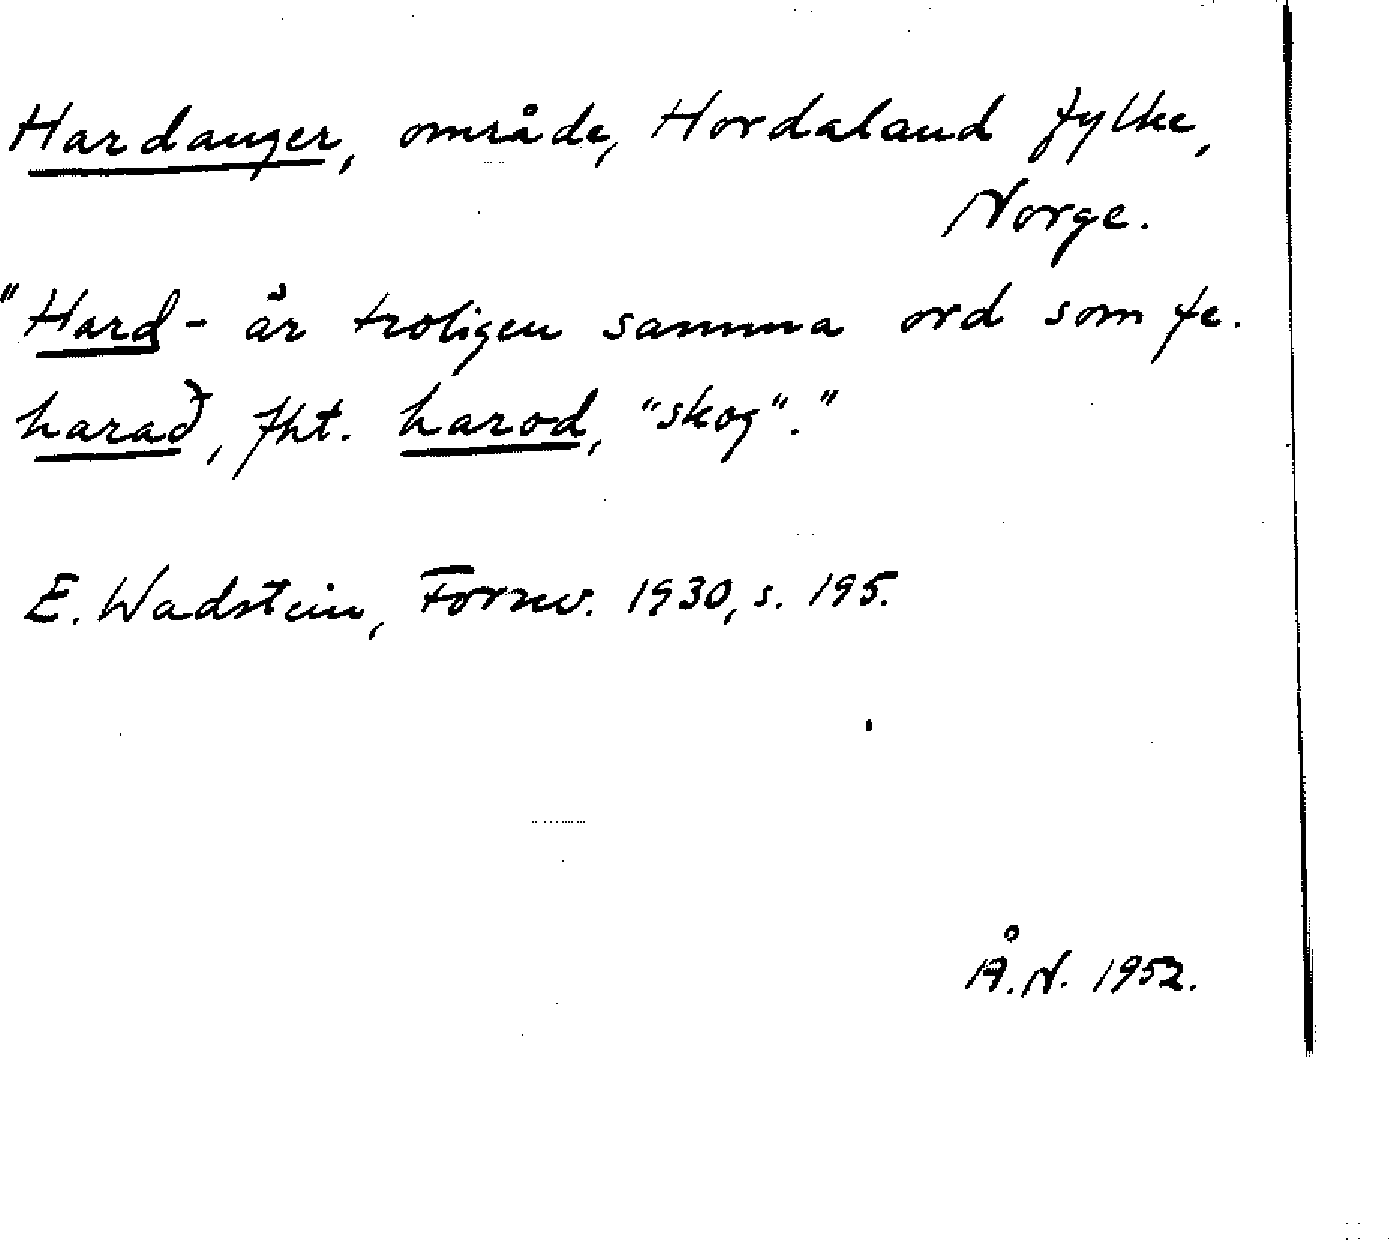 Hardanger, område, Hordaland fylke,
Norge.
"Hard- är troligen samma ord som fe.
harað, fht. harod, "skog"."
E. Wadstein, Fornv. 1930, s. 195.
Å.N. 1952.